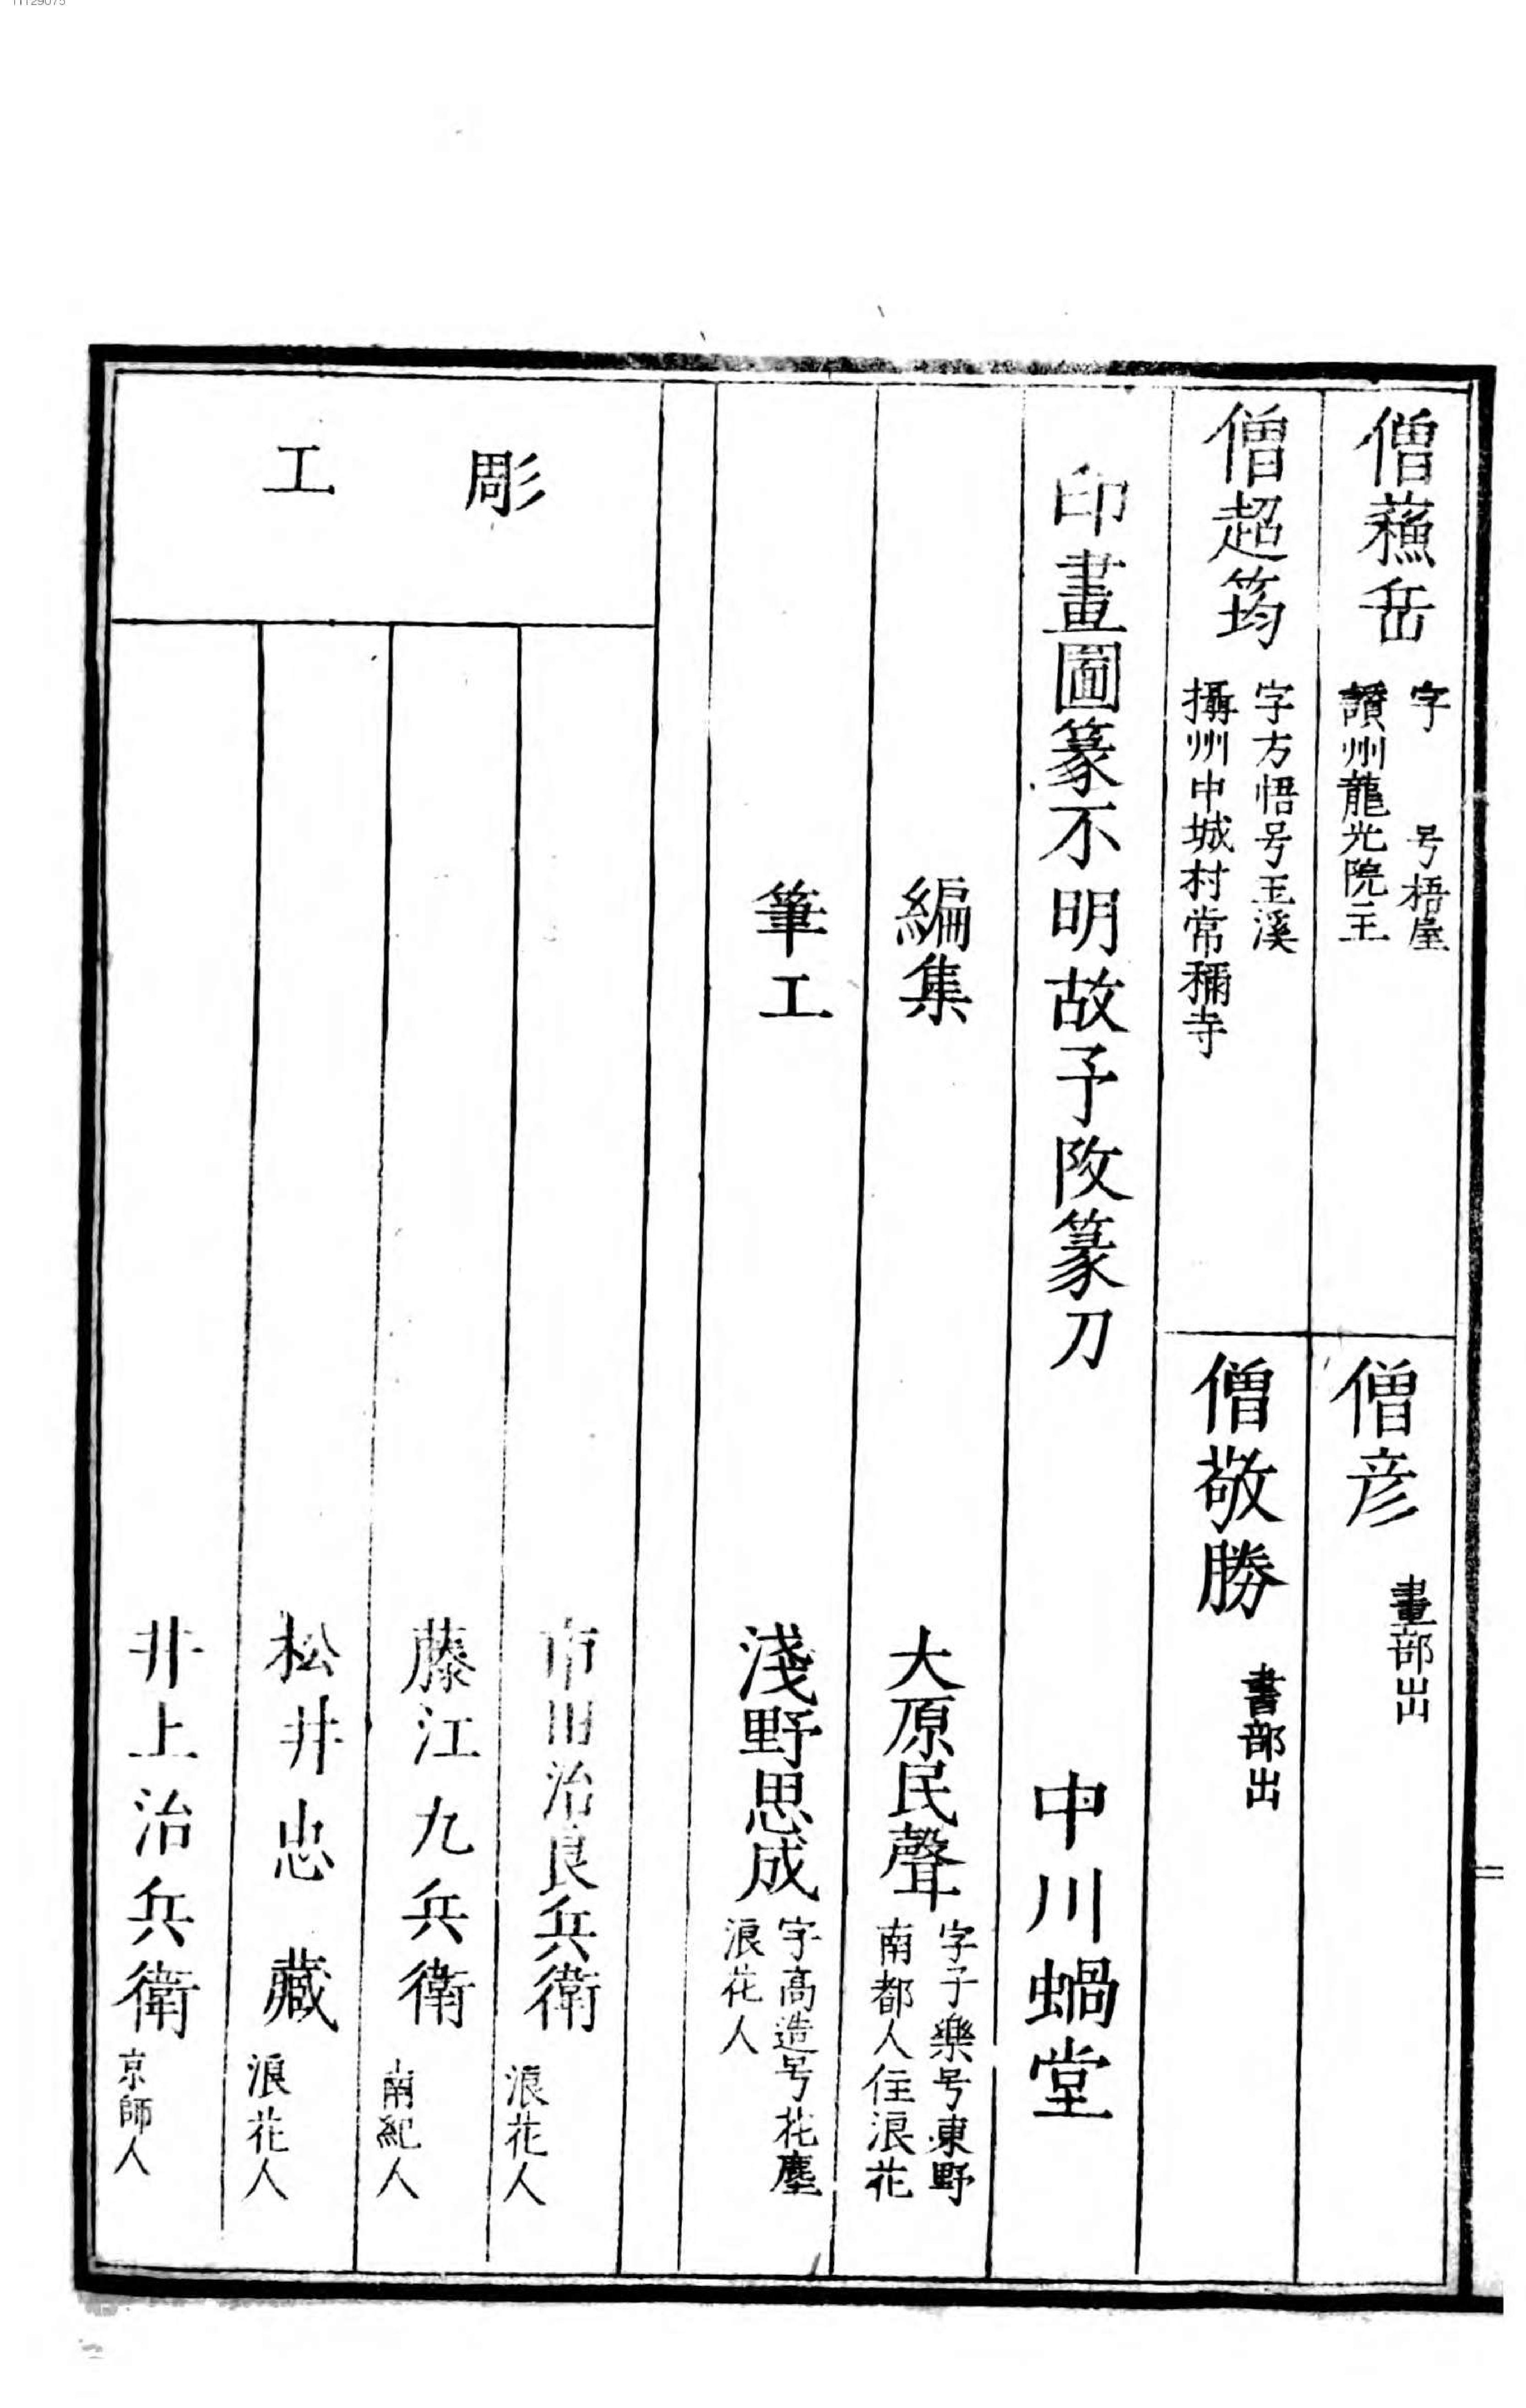 僧蘓岳
字　号梧屋
讃州龍光院主
僧彦
畫部出
僧超筠
字方悟号玉溪
攝州中城村常稱寺
僧敬勝
書部出
印畫圖篆不明故予改篆刀
中川蝸堂
編集
大原民聲
字子樂号東野
南都人住浪花
筆工
淺野思成
字髙造号花塵
浪花人
彫工
市田治良兵衛
浪花人
藤江九兵衛
南紀人
松井忠藏
浪花人
井上治兵衛
京師人